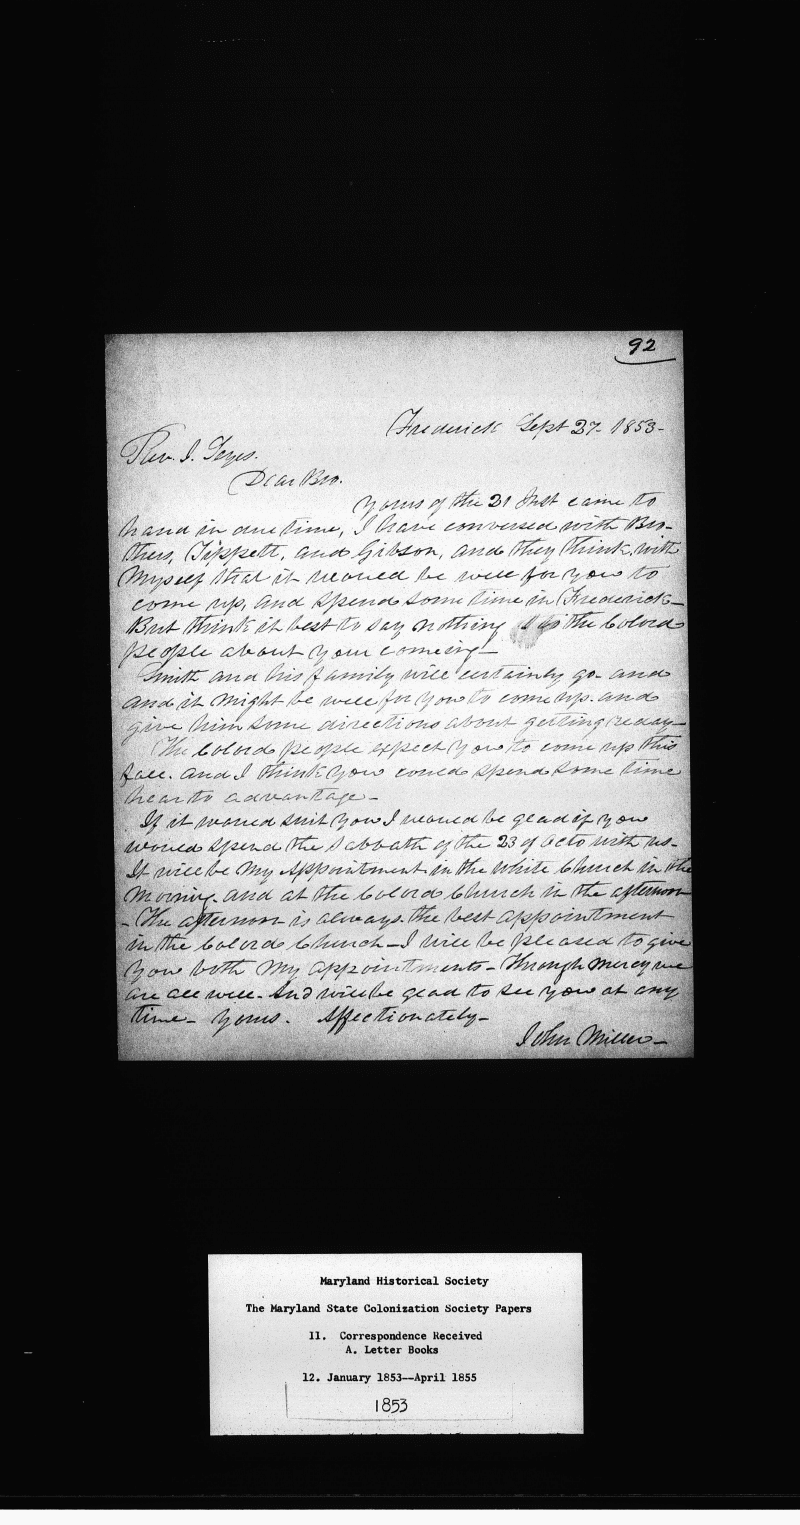 92
Frederick Sept 27- 1853-
Rev. J. Seys.
Dear Bro.
yours of the 21 Inst came to
hand in due time, I have conversed with Bro-
thers, Tippett, and Gibson, and they think, with
Myself that it would be well for you to
come up, and spend some time in Frederick-
But think it best to say nothing to the Colord
people about your comeing-
Smith and his family will certainly go- and
and it might be well for you to come up. and
give him some directions about getting ready-
The Colord people expect you to come up this
fall. and I think you could spend some time
hear to advantage-
If it would suit you I would be glad if you
would spend the Sabbath of the 23 of Octo with us-
It will be My Appointment in the white Church in the
Morning. and at the Colord Church in the afternoon
- The afternoon is always the best appointment
in the Colord Church- I will be pleased to give
you both My appointments- Through Mercy we
are all well- And will be glad to see you at any
time- yours. Affectionately-
John Miller-
Maryland Historical Society
The Maryland State Colonization Society Papers
11. Correspondence Received
A. Letter Books
12. January 1853--April 1855
1853